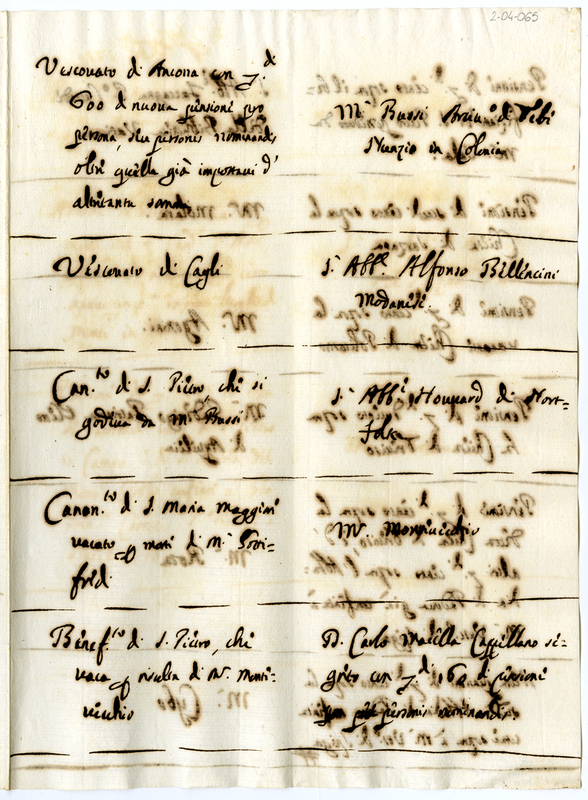 2-04-065
Vescovato di Ancona con
600 di nuova pensione pro
persona, seu personis nominandis
oltre quella già imposta
altrettanta somma
M.r Bussi Arciv.o di Tebe
Nunzio in Colonia
Vescovato di Cagli
S.r Abb.e Alfonso Bellincini
Modanese.
Can.to di S. Pietro, che si
godeva da M.r Bussi
S.r Abb.e Houuard di Nort=
folke
Canon.to di S. Maria Maggiore
vacato p morte di M.r Gotti=
fredi
M.r Montevecchio
Benef.to di S. Pietro, che
vaca p risulta di M.r Monte=
vecchio
D. Carlo Maiella Cappellano se=
greto con 160 di pensione
personis nominandis.